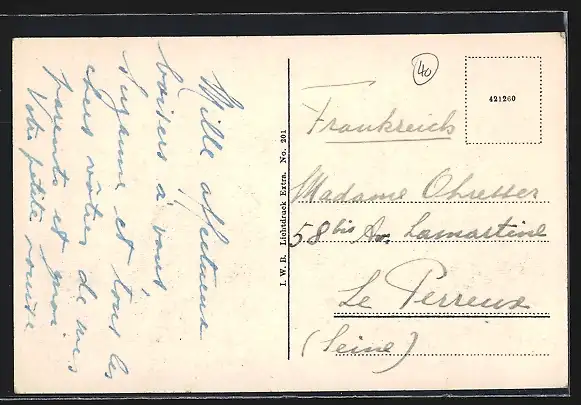 Mille affectueux
baisers à vous
Suzanne et tous les
chers vôtres de mes
parents et moi
Votre petite
I. W. B. Lichtdruck Extra. No. 201
40
421260
Frankreich
Madame Ohresser
58 bis Av. Lamartine
Le Perreux
(Seine)